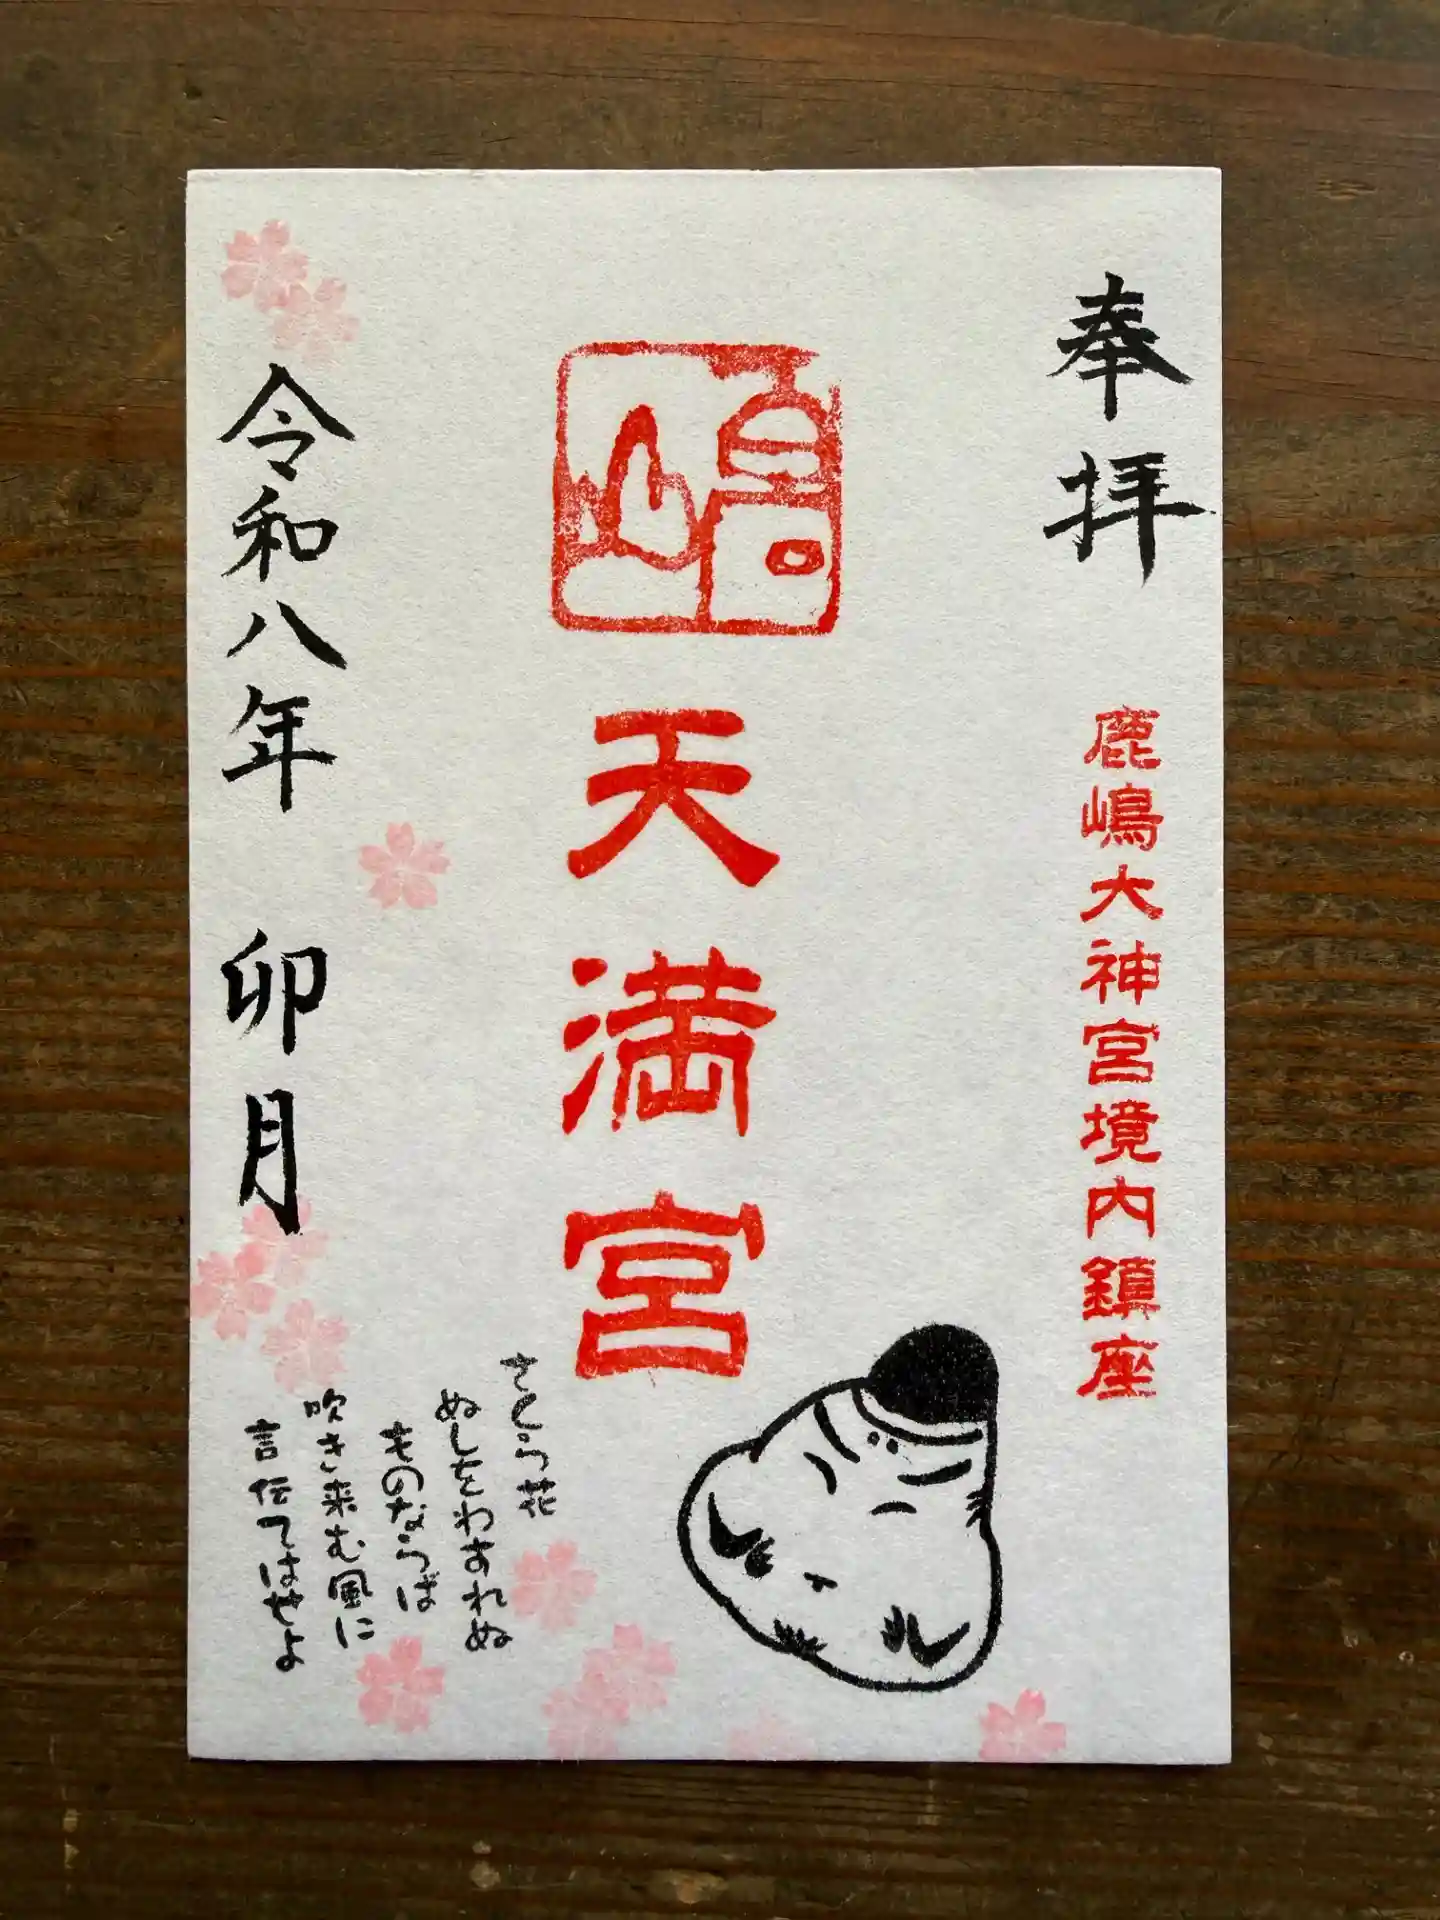 奉拝
鹿嶋大神宮境内鎮座
嶋
天満宮
さくら花
ぬしをわすれぬ
ものならば
吹き来む風に
言伝てはせよ
令和八年 卯月